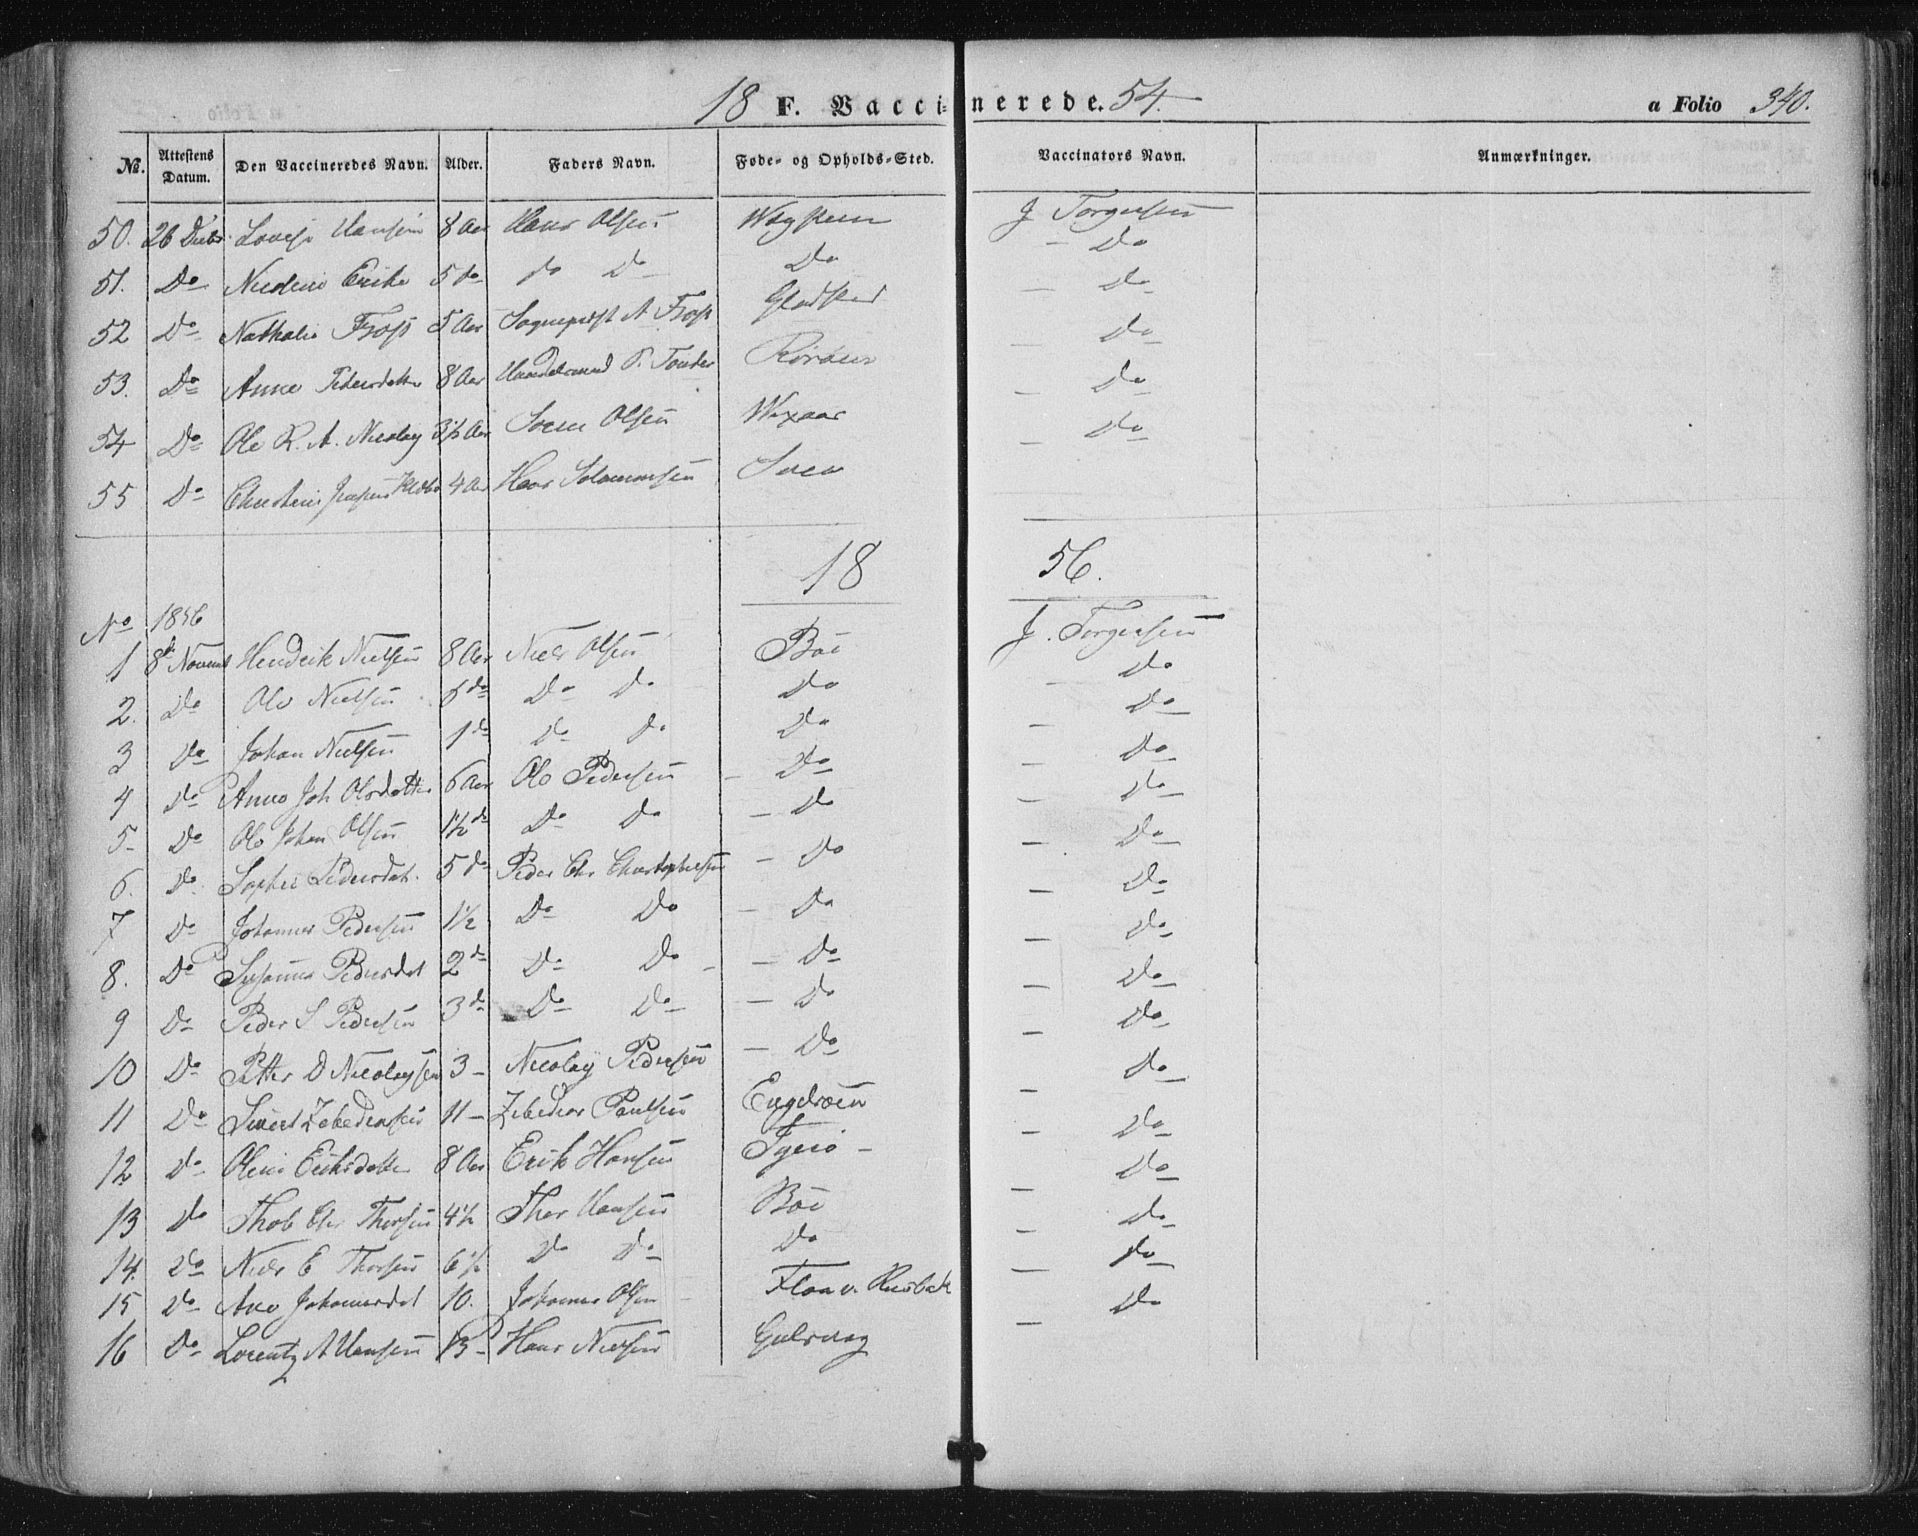 18 F. Vaccinerede. 54. a Folio 340.
No. Attestens Datum. Den Vaccineredes Navn. Alder. Faders Navn. Føde- og Opholds-Sted. Vaccinators Navn. Anmærkninger.
50. 26 Decbr Hansen 8 Aar Hans Olsen J Torgersen
51. Do Erike 5 do do Do Do Do
52 Do Nathalie 5 Aar Sognepræst A Gladstad Do
53. Do Anne Pedersdatter 8 Aar Handelsmand P. Tonder Rørøen Do
54 Do Ole R. A. Nicolay 3½ Aar Olsen Do
55 Do 4 Aar Hans Salamonsen Do
18 56.
No 1856
1 8de Novemb Hendrik Nielsen 8 Aar Niels Olsen Bøe J. Torgersen
2. Do Ole Nielsen Do Do Do Do
3 Do Johan Nielsen 1 do Do Do Do Do
4 Do Anne Joh Olsdatter 6 Aar Ole Pedersen - Do Do
5 Do Ole Johan Olsen 1½ do Do Do - Do Do
6. Do Sophie Pedersdat. 5 do Peder Chr Christophersen - Do Do
7 Do Johannes Pedersen 1½ Do Do - Do Do
8. Do Susanna Pedersdat 2 do Do Do - Do Do
9 Do Peder S Pedersen 3 do Do Do - Do Do
10 Do Petter D Nicolaysen 3 - Nicolay Pedersen - Do Do
11 Do Sivert Zebediassen 11 - Zebedias Paulsen Engelsøen Do
12 Do Oline Eriksdatter 8 Aar Erik Hansen Do
13 Do Thob Chr Thorsen 4½ Thor Hansen Bøe Do
14. Do Niels E Thorsen 6½ Do Do Do Do
15 Do Ane Johannesdat 10. Johannes Olsen Do
16 Do Lorentz A Hansen 13 - Hans Nielsen Gulsvag Do